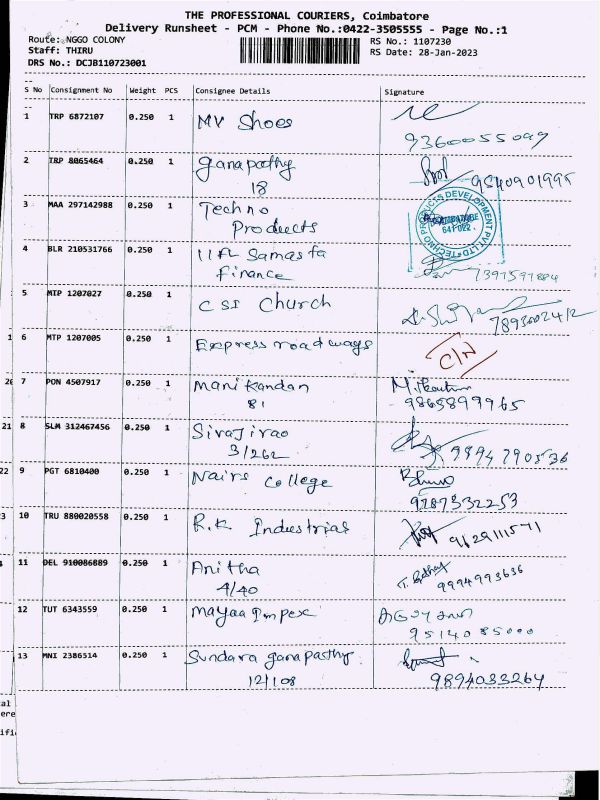 THE PROFESSIONAL COURIERS, Coimbatore
Delivery Runsheet - PCM - Phone No.:0422-3505555 - Page No.:1
Route: NGGO COLONY
RS No.: 1107230
Staff: THIRU
RS Date: 28-Jan-2023
DRS No.: DCJB110723001
S No Consignment No Weight PCS Consignee Details Signature
1 TRP 6872107 0.250 1 MV Shoes
9360055099
2 TRP 8065464 0.250 1 ganapathy
18 9540901995
3 MAA 297142988 0.250 1 Techno
Products
TECHNO PRODUCTS DEVELOPMENT PVT LTD
641 022.
4 BLR 210531766 0.250 1 IIFL Samasta
finance
7397597884
5 MTP 1207027 0.250 1 CSI Church
7893002412
6 MTP 1207005 0.250 1 Express roadways C/N
7 PON 4507917 0.250 1 Manikandan
81 9865899965
8 SLM 312467456 0.250 1 Sivajirao
3/262 9894790536
9 PGT 6810400 0.250 1 Nairs College
9787332253
10 TRU 880020558 0.250 1 R.K Industrias
9629111571
11 DEL 910086889 0.250 1 Anitha
4/40 9994993636
12 TUT 6343559 0.250 1 Mayaa Impex
9514085000
13 MNI 2386514 0.250 1 Sundara ganapasthy
12/108 9894033264